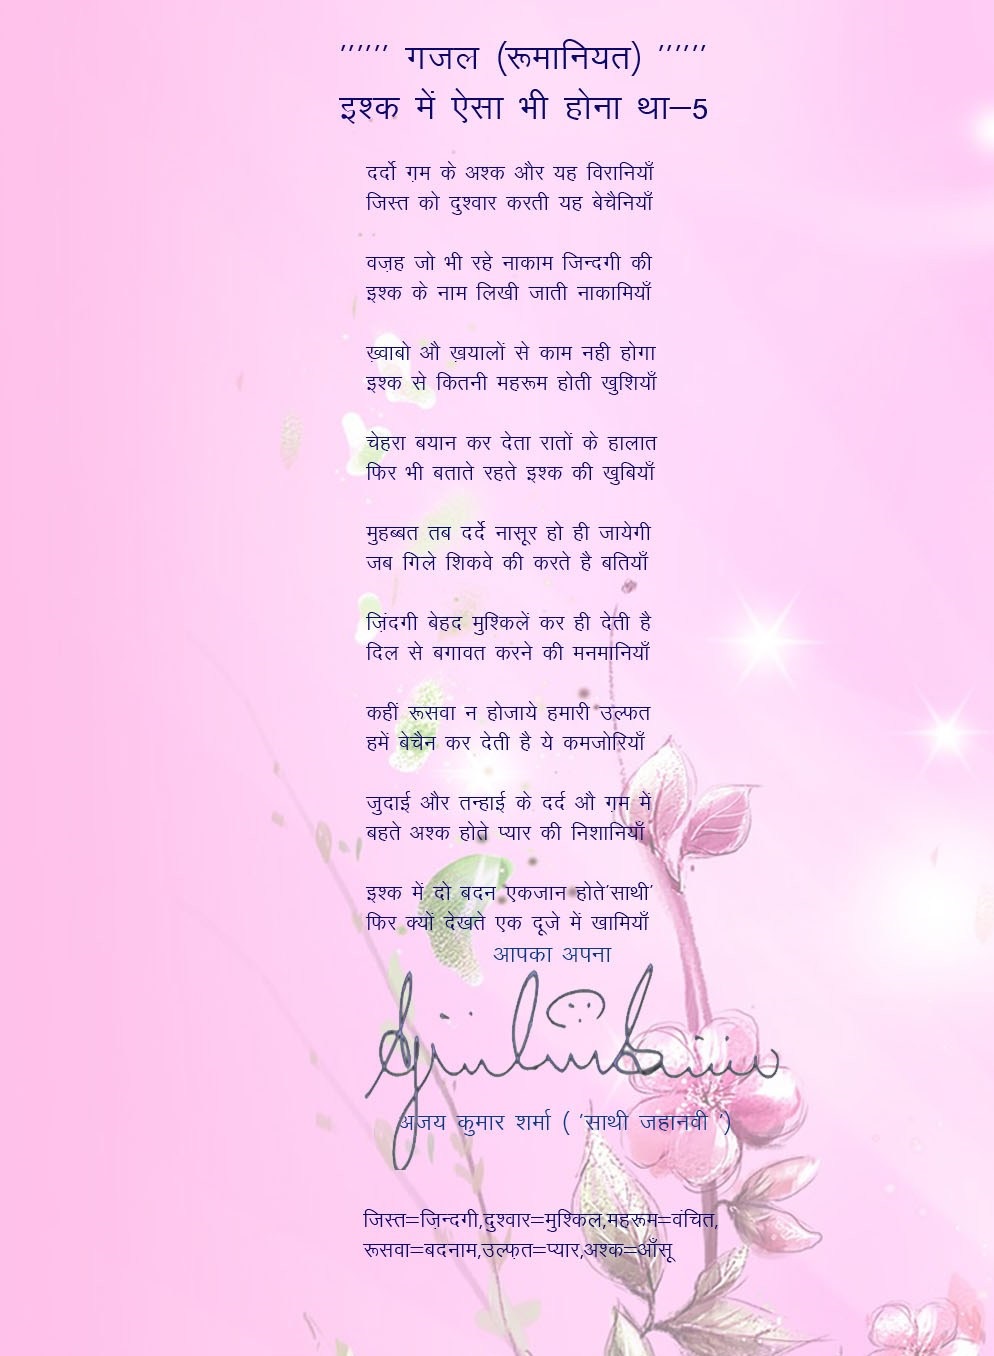 ’’’’’’ गजल (रूमानियत) ’’’’’’
इश्क में ऐसा भी होना था–5
दर्दो ग़म के अश्क और यह विरानियाँ
जिस्त को दुश्वार करती यह बेचैनियाँ
वज़ह जो भी रहे नाकाम जिन्दगी की
इश्क के नाम लिखी जाती नाकामियाँ
ख़्वाबो औ ख़यालों से काम नही होगा
इश्क से कितनी महरूम होती खुशियाँ
चेहरा बयान कर देता रातों के हालात
फिर भी बताते रहते इश्क की खुबियाँ
मुहब्बत तब दर्दे नासूर हो ही जायेगी
जब गिले शिकवे की करते है बतियाँ
ज़िंदगी बेहद मुश्किलें कर ही देती है
दिल से बगावत करने की मनमानियाँ
कहीं रूसवा न होजाये हमारी उल्फत
हमें बेचैन कर देती है ये कमजोरियाँ
जुदाई और तन्हाई के दर्द औ ग़म में
बहते अश्क होते प्यार की निशानियाँ
इश्क में दो बदन एकजान होते’साथी’
फिर क्यों देखते एक दूजे में खामियाँ
आपका अपना
अजय कुमार शर्मा ( ’साथी जहानवी ’)
जिस्त=ज़िन्दगी,दुश्वार=मुश्किल,महरूम=वंचित,
रूसवा=बदनाम,उल्फ़त=प्यार,अश्क=आँसू